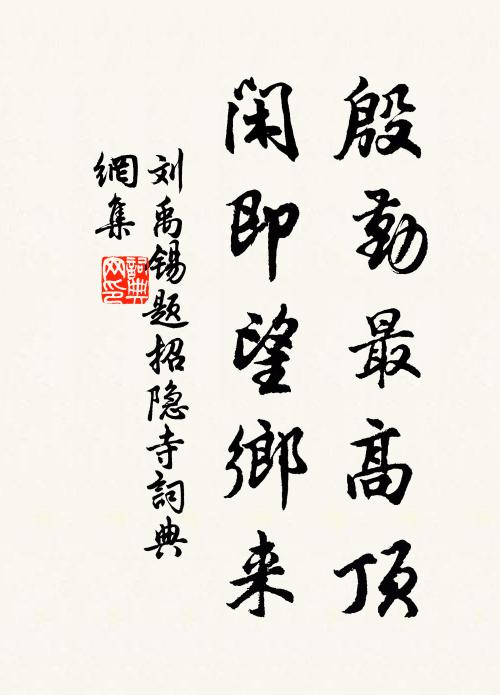 殷勤最高顶
闲即望鄉来
刘禹锡题招隐寺詞典
網集
詞典
网印